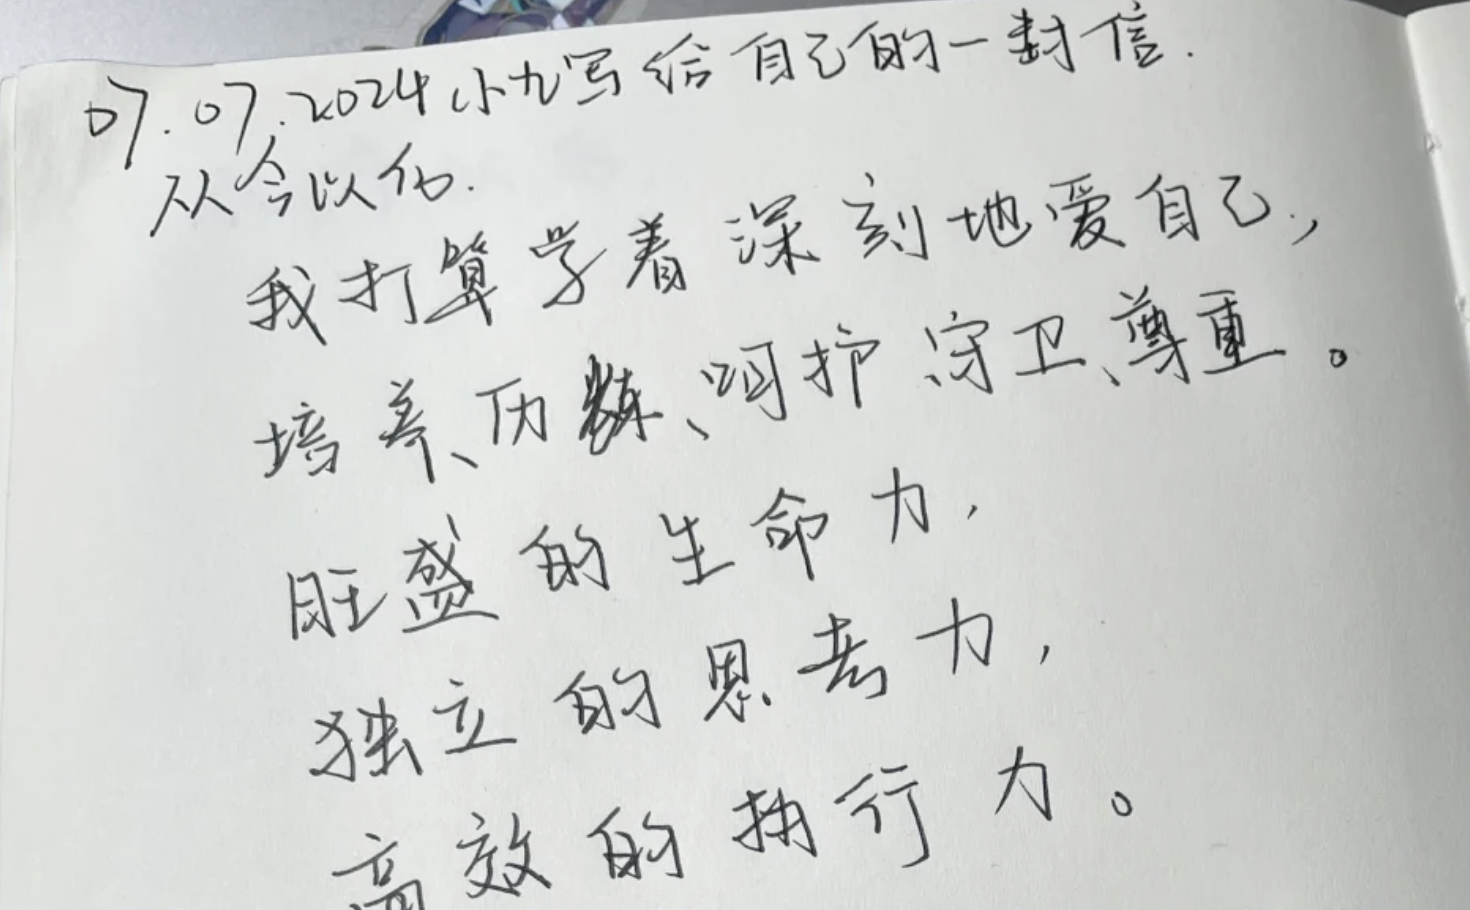 07.07.2024小九写给自己的一封信.
从今以后.
我打算学着深刻地爱自己,
培养、历练、呵护、守卫、尊重。
旺盛的生命力,
独立的思考力,
高效的执行力。